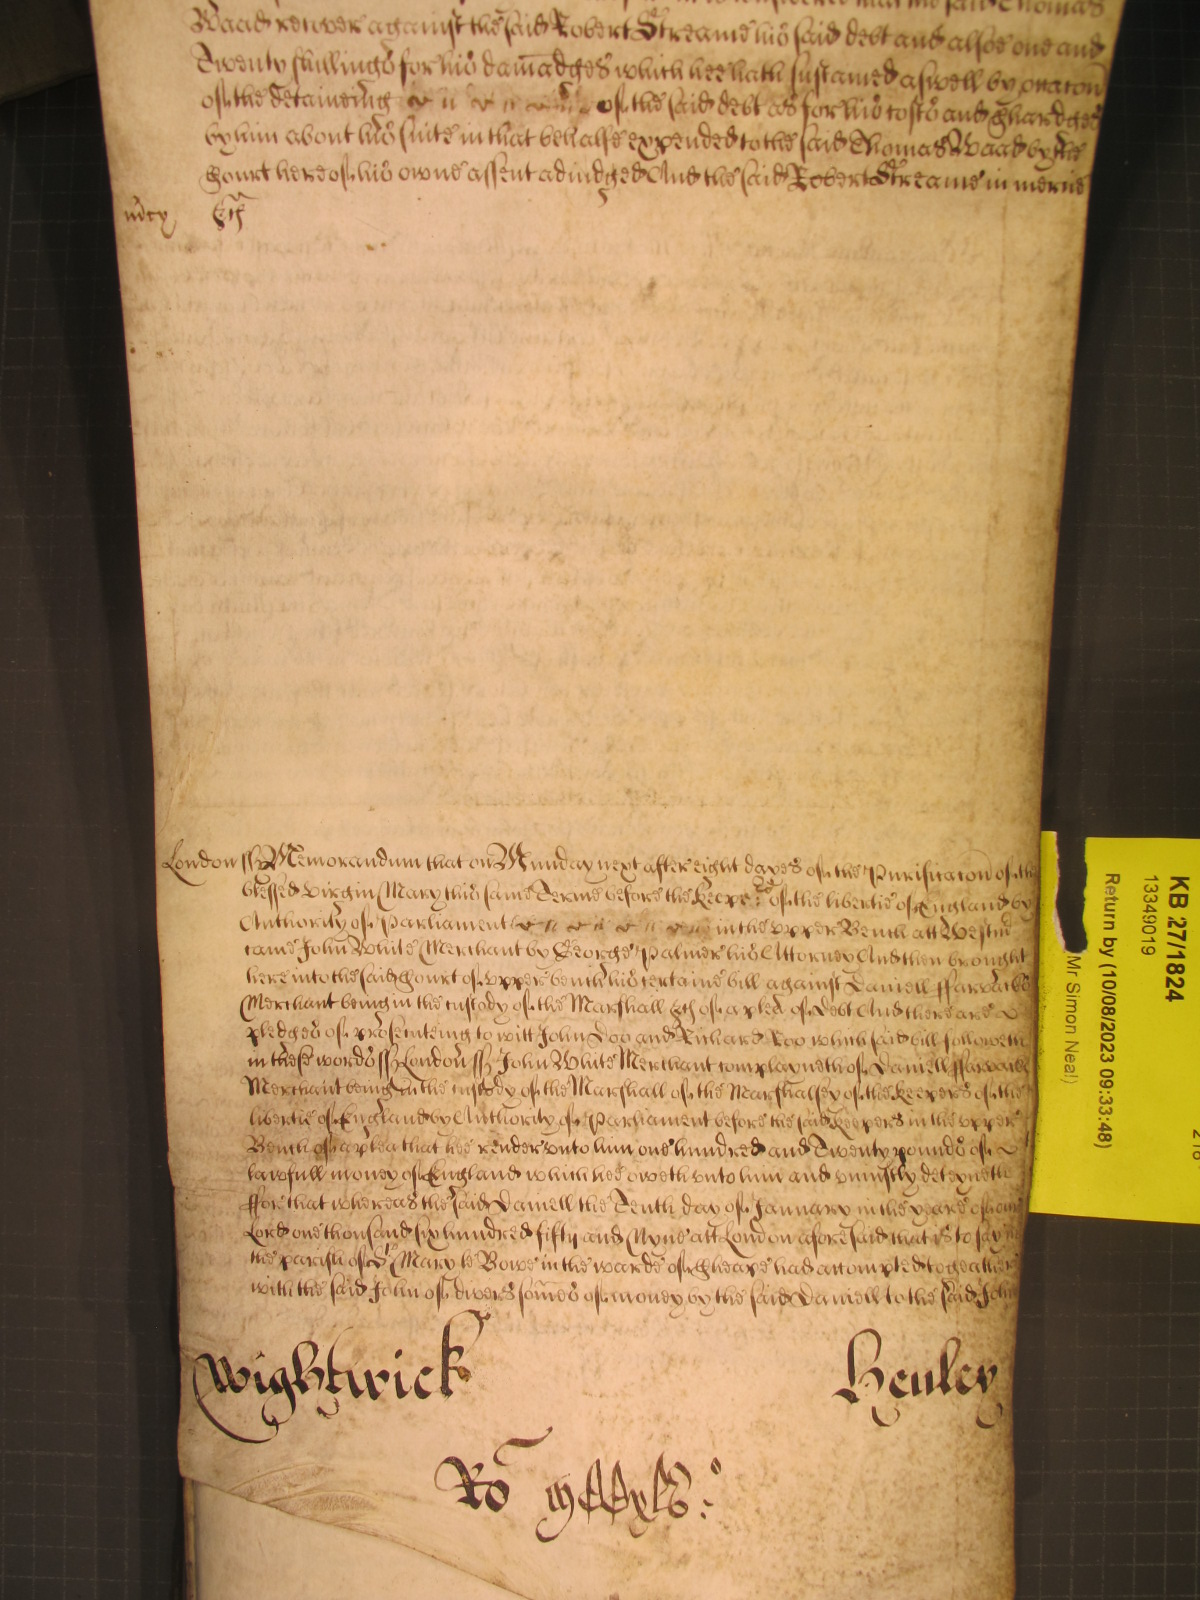 Waad recover against the said Robert Streame his said debt and alsoe one and
Twenty shillings for his damadges which hee hath sustained aswell by occacon
of the deteineing of the said debt as for his costs and Chardges
by him about his suite in that behalfe expended to the said Thomas Waad by the
Court here of his owne assent adiudged And the said Robert Streame in mercie
mcy &c
London ss Memorandum that on Munday next after eight dayes of the Purificacon of the
blessed virgin Mary this same Terme before the Keepers of the libertie of England by
Authority of Parliament in the vpper Bench att Westm
came John White Merchant by George Palmer his Attorney And then brought
here into the said Court of vpper bench his certaine bill against Daniell
Merchant being in the custody of the Marshall &c of a plea of debt And there are
pledges of prosecuteing to witt John Doo and Richard Roo which said bill followeth
in these words ss London ss John White Merchant complayneth of Daniell
Merchant being in the custody of the Marshall of the Marshalsey of the Keepers of the
libertie of England by Authority of Parliament before the said Keepers in the vpper
Bench of a plea that hee render vnto him one hundred and Twenty pounds of
lawfull money of England which hee oweth vnto him and vniustly deteyneth
ffor that whereas the said Daniell the Tenth day of January in the yeare of our
Lord one thousand six hundred fifty and Nyne att London aforesaid that is to say in
the parish of St Mary le Bowe in the warde of Cheape had accompted togeather
with the said John of divers somes of money by the said Daniell to the said John
Wightwick Henley
Ro
KB 27/1824
13349019
Return by (10/08/2023 09:33:48)
Mr Simon Neal)